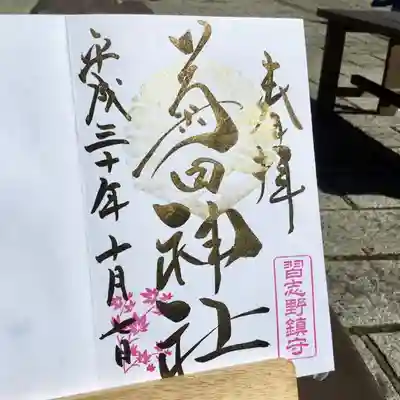 奉拝
菊田神社
平成三十年十月七日
習志野鎮守